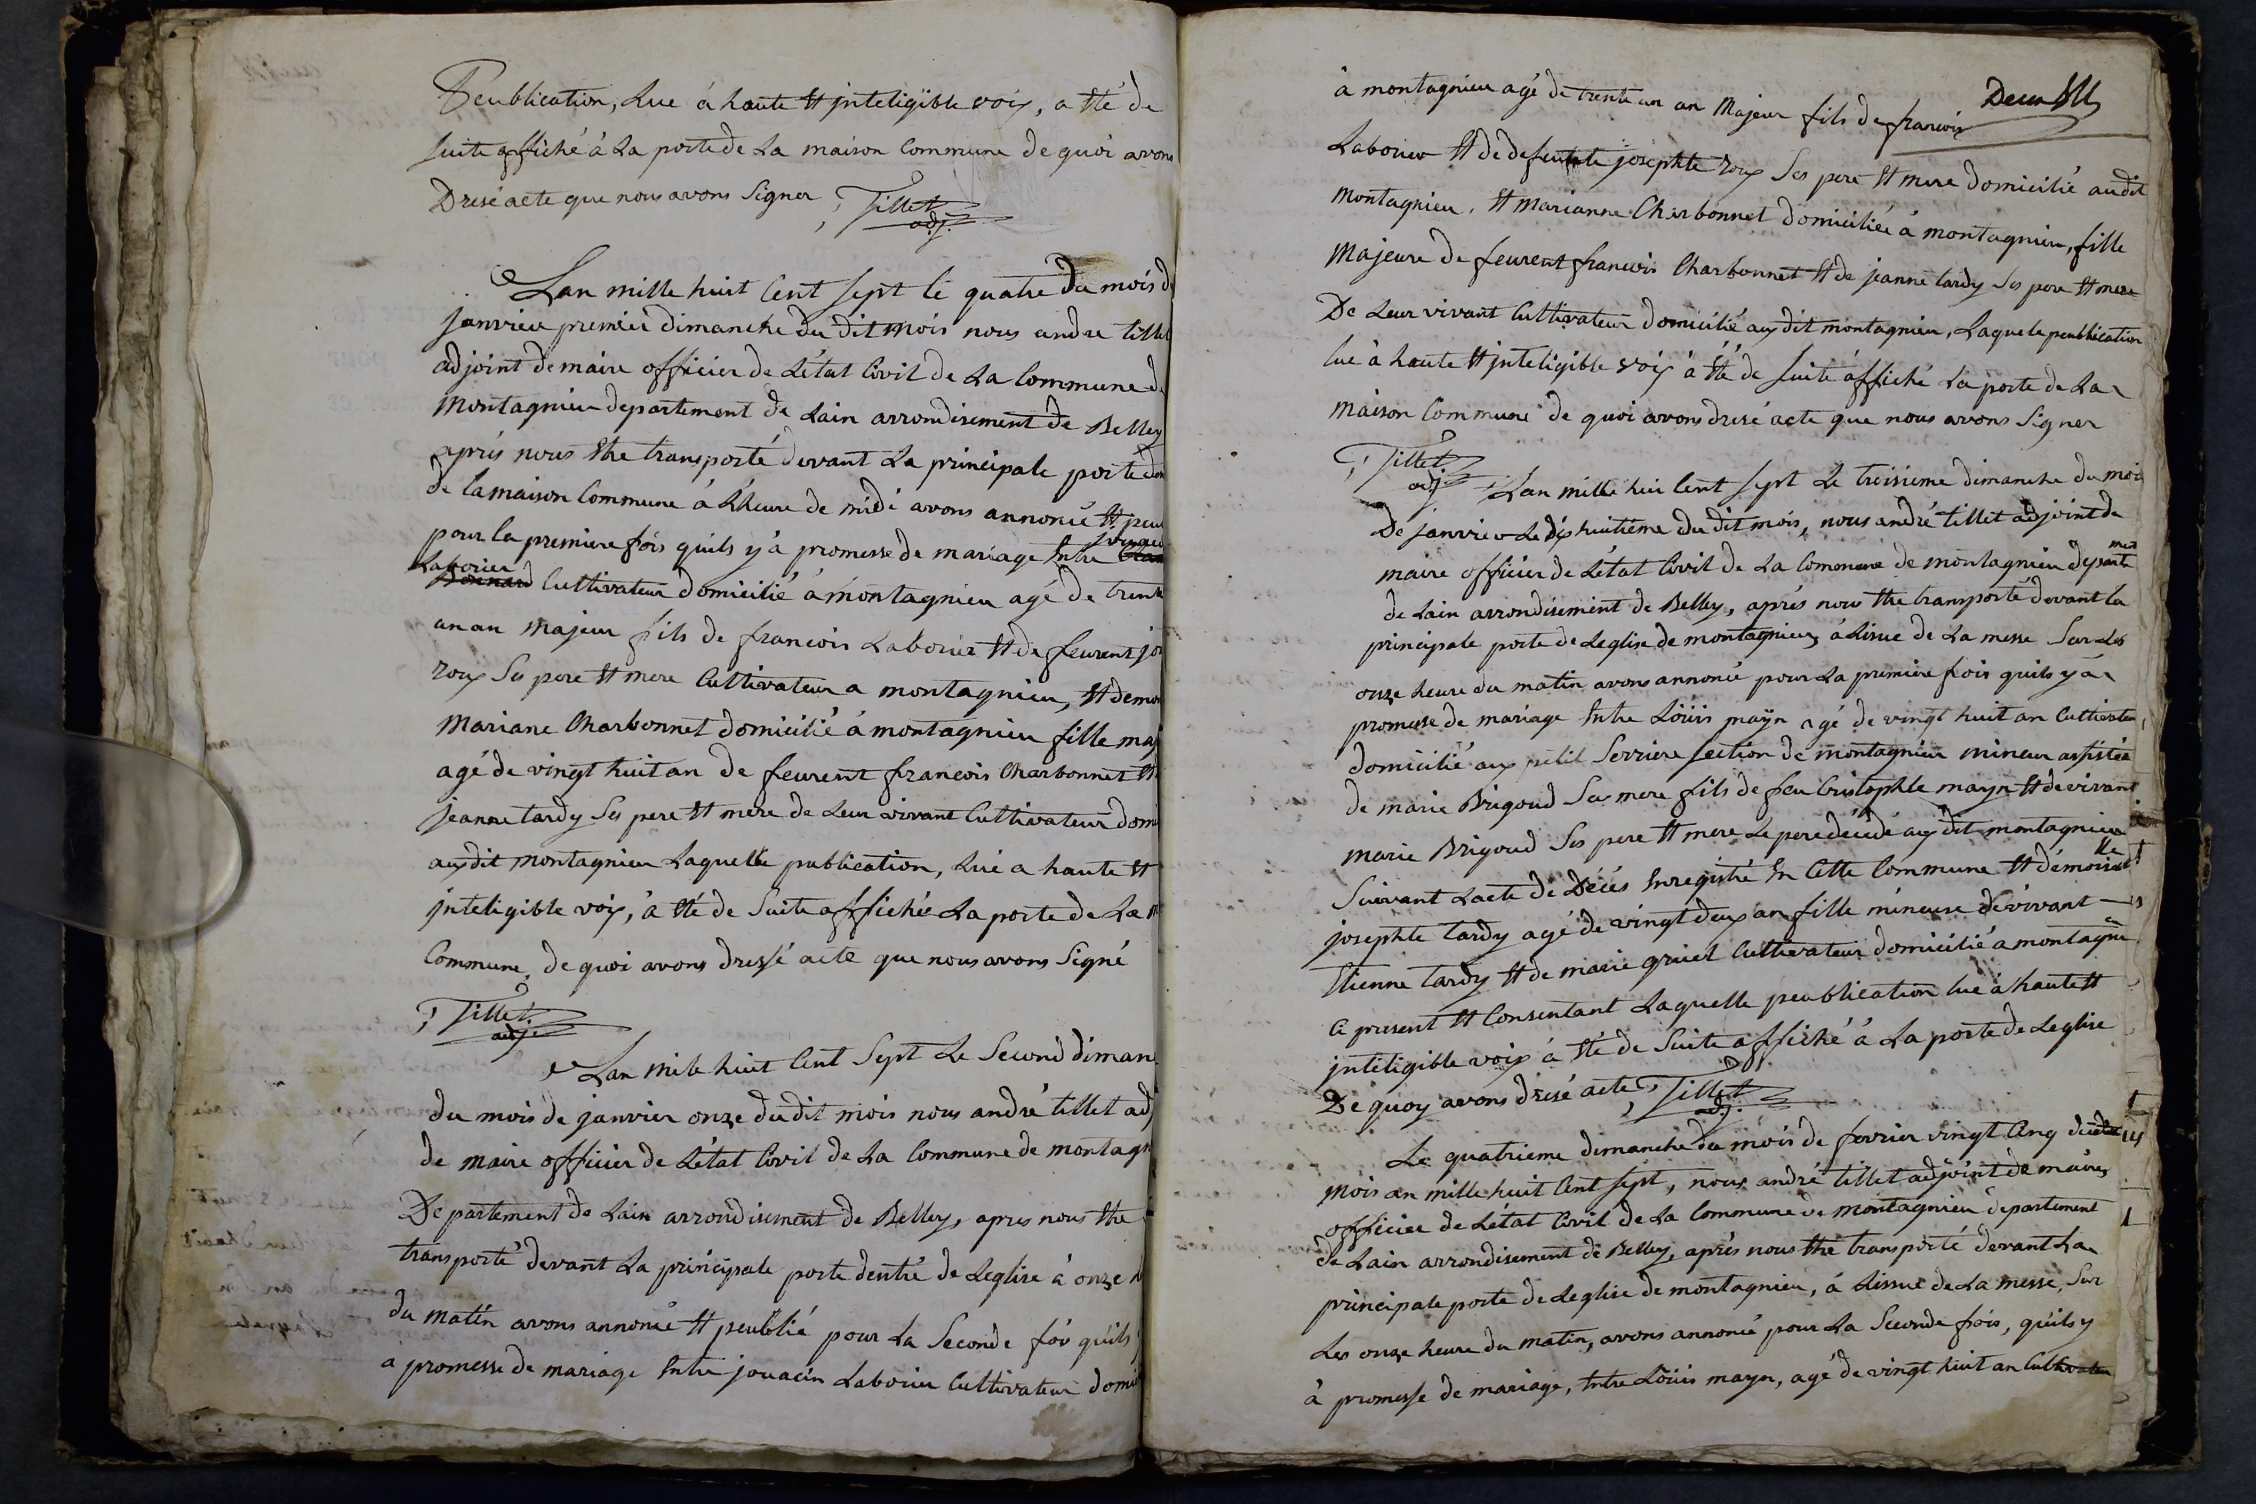 Peublication, Lue à haute Et jnteligible voix, a Eté de
suite affiché à La porte de La maison Commune de quoi avons
Dresé acte que nous avons Signer Tillet
adj.
Lan mille huit Cent sept le quatre du mois d
janvier premier dimanche du dit mois nous andre tillet
adjoint de maire officier de L'état Civil de La Commune de
Montagnieu departement de Lain arrondisement de Belley
aprés nous Etre transporté devant La principale porte
de la maison Commune à L'heure de midi avons annoncé Et peu
pour la premiere fois quils y'à promesse de mariage Entre
Laborier
Cultivateur domicilié à montagnieu agé de trente
un an Majeur fils de francois Laborier Et de feurent jo
roux Ses pere Et mere Cultivateur a montagnieu, Et demoi
Mariane Charbonnet domicilié à montagnieu fille maj
agé de vingt huit an de feurent francois Charbonnet Et
jeanne tardy Ses pere Et mere de Leur vivant Cultivateur domi
auxdit montagnieu Laquelle publication, Lue a haute Et
jnteligible voix, à Eté de Suite affichée La porte de La m
Commune, de quoi avons dressé acte que nous avons Signé
Tillet
adj.
Lan mile huit Cent Sept Le Second diman
du mois de janvier onze du dit mois nous andré tillet adj
de maire officier de L'état Civil de La Commune de montagn
Departement de Lain arrondisement de Belley, apres nous Etre
transporté devant La principale porte dentré de Leglise à onze h
du matin avons annoncé Et peublié pour La Seconde foi quils
a promesse de mariage Entre jouacin Laborier Cultivateur domi
Deux
à montagnieu agé de trente un an Majeur fils de francois
Laborier Et de defeunte josephte roux Ses pere Et mere domicilié audit
Montagnieu, Et marianne Charbonnet domiciliée à montagnieu, fille
Majeure de feurent francois Charbonnet Et de jeanne tardy Ses pere Et mere
De Leur vivant Cultivateur domicilié auxdit montagnieu, Laquele peublication
lue à haute Et jnteligible voix à Eté de suite affiché La porte de La
maison Commune de quoi avons dresé acte que nous avons Signer
Tillet
adj
Lan mille hui Cent sept Le troisieme dimanche du mois
De janvier Le dix huitième du dit mois, nous andré tillet adjoint de
maire officier de L'état Civil de La Commune de montagnieu departement
de Lain arrondisement de Belley, aprés nous Etre transporté devant la
principale porte de Leglise de montagnieu, à Lisue de La messe Sur Les
onze heure du matin avons annoncé pour La premiere fois quils y à
promesse de mariage Entre Löuis mayn agé de vingt huit an Cultivateur
domicilié aux petit Serriere section de montagnieu mineur assistée
de marie Brigoud Sa mere fils de feu Cristophle mayn Et de vivant
marie Brigoud Ses pere Et mere Le pere décédé auxdit montagnieu
Suivant Lacte de Décés Enregistré En Cette Commune Et démoiselle
josephte tardy agé de vingt deux an fille mineure de vivant
Etienne tardy Et de marie gruiet Cultivateur domicilié a montagnieu
Ci present Et Consentant Laquelle peublication lue à haute Et
jnteligible voix à Eté de Suite affiché à La porte de Leglise
De quoy avons dresé acte, Tillet
adj.
Le quatrieme dimanche du mois de fevrier vingt Cinq
Mois an mille huit Cent sept, nous andré tillet adjoint de maire,
officier de L'état Civil de La Commune de montagnieu département
de Lain arrondisement de Belley, aprés nous Etre transporté devant La
principale porte de Leglise de montagnieu, à Lissue de La messe, Sur
Les onze heure du matin, avons annoncé pour La Seconde fois, quils y
à promesse de mariage, Entre Löuis mayn, agé de vingt huit an Cultivateur